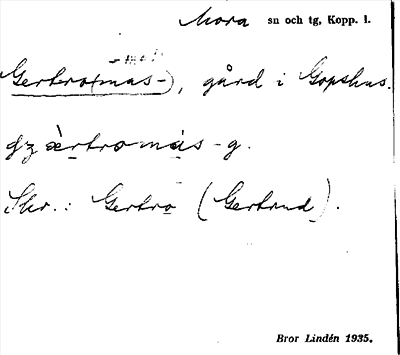 Mora sn och tg, Kopp. l.
Gertro(mas-), gård i Gopshus.
Skr.: Gertro (Gertrud).
Bror Lindén 1935.